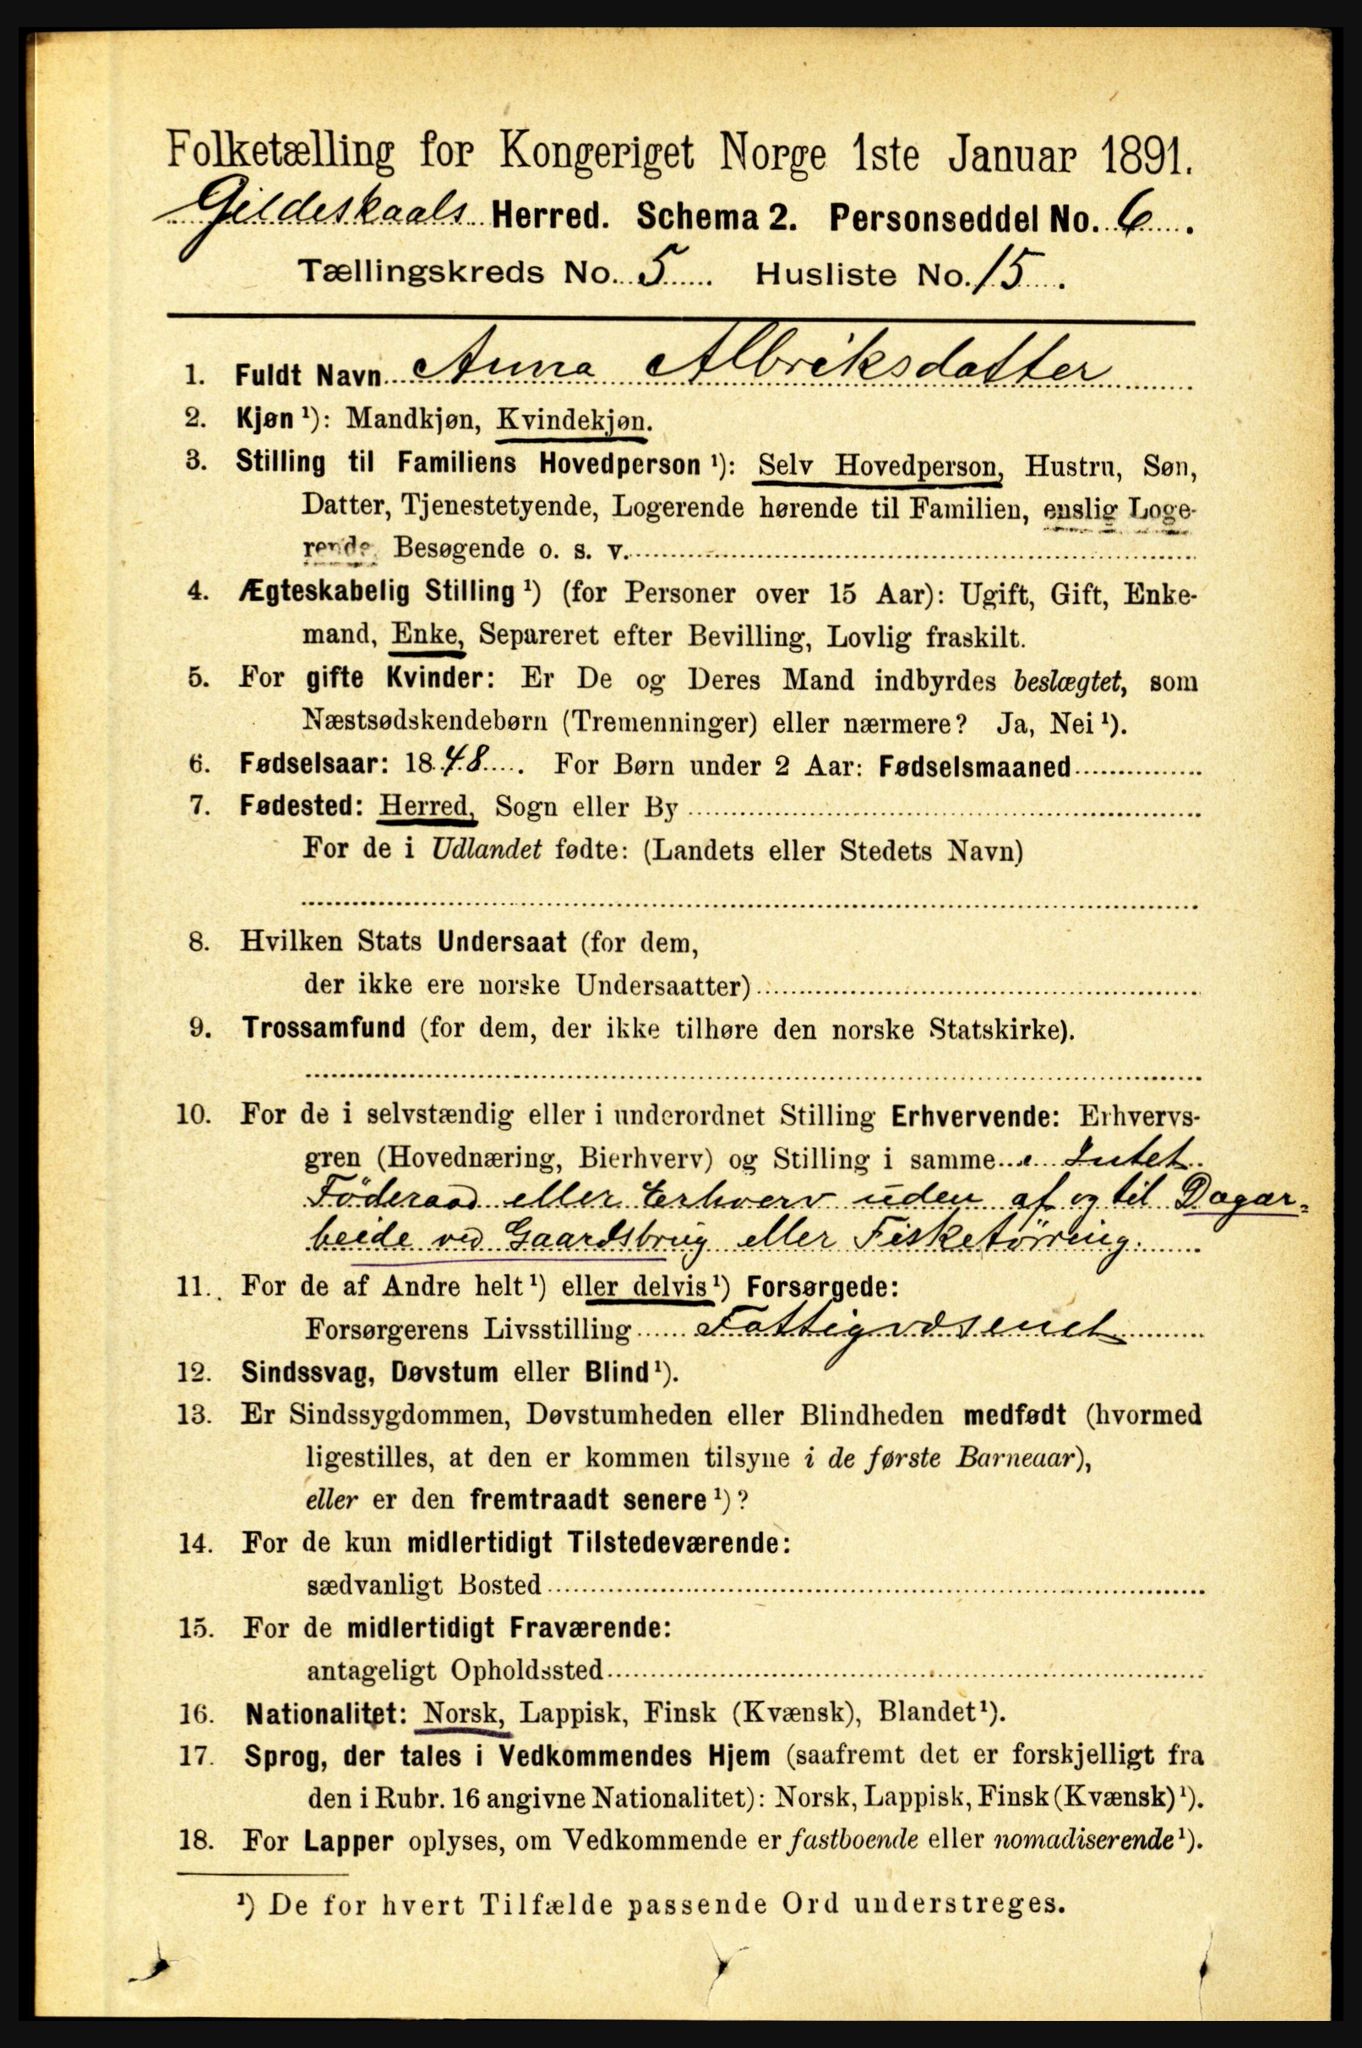 Folketælling for Kongeriget Norge 1ste Januar 1891.
Gildeskaals Herred. Schema 2. Personseddel No. 6.
Tællingskreds No. 5. Husliste No. 15.
1. Fuldt Navn Anna Albriksdatter
2. Kjøn ¹): Mandkjøn, Kvindekjøn.
3. Stilling til Familiens Hovedperson ¹): Selv Hovedperson, Hustru, Søn,
Datter, Tjenestetyende, Logerende hørende til Familien, enslig Loge-
rende, Besøgende o. s. v.
4. Ægteskabelig Stilling ¹) (for Personer over 15 Aar): Ugift, Gift, Enke-
mand, Enke, Separeret efter Bevilling, Lovlig fraskilt.
5. For gifte Kvinder: Er De og Deres Mand indbyrdes beslægtet, som
Næstsødskendebørn (Tremenninger) eller nærmere? Ja, Nei ¹).
6. Fødselsaar: 1848. For Børn under 2 Aar: Fødselsmaaned
7. Fødested: Herred, Sogn eller By
For de i Udlandet fødte: (Landets eller Stedets Navn)
8. Hvilken Stats Undersaat (for dem,
der ikke ere norske Undersaatter)
9. Trossamfund (for dem, der ikke tilhøre den norske Statskirke).
10. For de i selvstændig eller i underordnet Stilling Erhvervende: Erhvervs-
gren (Hovednæring, Bierhverv) og Stilling i samme Intet
Föderaad eller Erhverv uden af og til Dagar-
beide ved Gaardsbrug eller Fisketörring.
11. For de af Andre helt ¹) eller delvis ¹) Forsørgede:
Forsørgerens Livsstilling Fattigvæsenet
12. Sindssvag, Døvstum eller Blind ¹).
13. Er Sindssygdommen, Døvstumheden eller Blindheden medfødt (hvormed
ligestilles, at den er kommen tilsyne i de første Barneaar),
eller er den fremtraadt senere ¹)?
14. For de kun midlertidigt Tilstedeværende:
sædvanligt Bosted
15. For de midlertidigt Fraværende:
antageligt Opholdssted
16. Nationalitet: Norsk, Lappisk, Finsk (Kvænsk), Blandet ¹).
17. Sprog, der tales i Vedkommendes Hjem (saafremt det er forskjelligt fra
den i Rubr. 16 angivne Nationalitet): Norsk, Lappisk, Finsk (Kvænsk) ¹).
18. For Lapper oplyses, om Vedkommende er fastboende eller nomadiserende ¹).
¹) De for hvert Tilfælde passende Ord understreges.